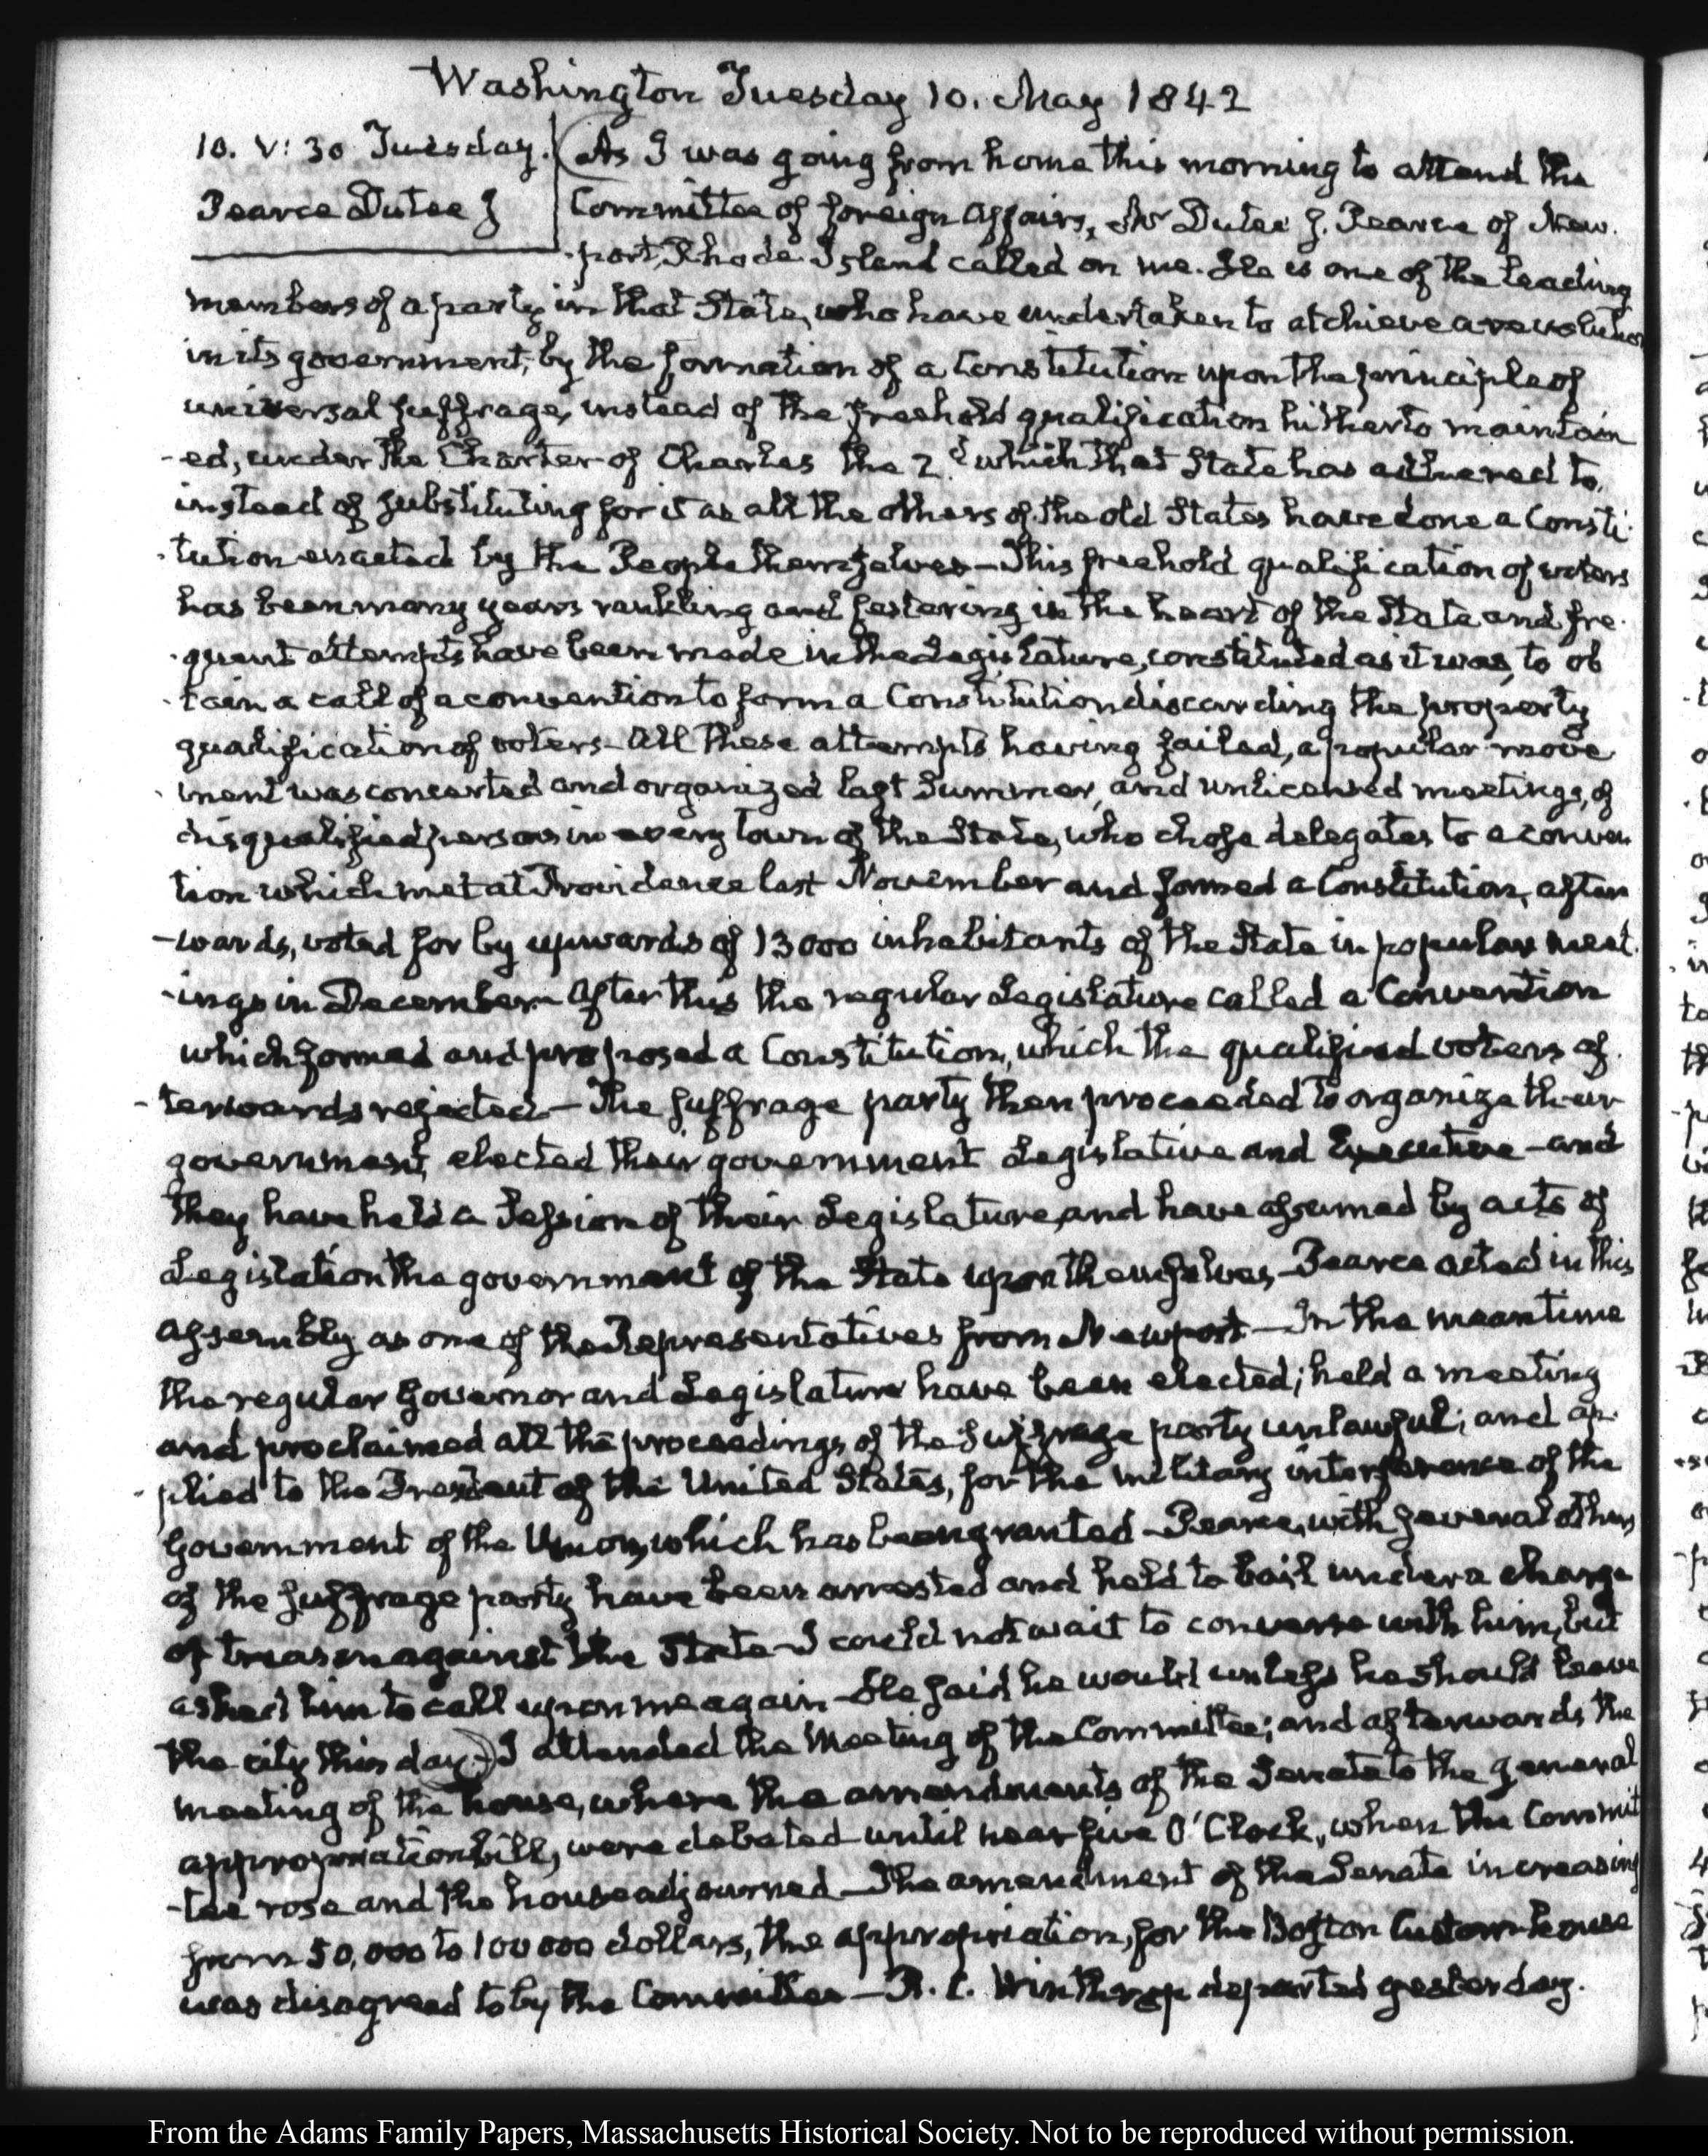 Washington Tuesday 10. May 1842
10. V: 30 Tuesday.
Pearce Dutee J
As I was going from home this morning to attend the
Committee of foreign Affairs, Mr Dutee J. Pearce of New-
-port, Rhode-Island called on me. He is one of the leading
members of a party in that State, who have undertaken to atchieve a revolution
in its government, by the formation of a Constitution upon the principle of
universal suffrage, instead of the freehold qualification hitherto maintain
-ed, under the Charter of Charles the 2d which that State has adhered to,
instead of substituting for it as all the others of the old States have done a Consti-
-tution enacted by the People themselves — This freehold qualification of voters
has been many years rankling and festering in the heart of the State and fre-
-quent attempts have been made in the Legislature, constituted as it was, to ob
-tain a call of a convention to form a Constitution discarding the property
qualification of voters — All these attempts having failed, a popular move
-ment was concerted and organized last Summer, and unlicensed meetings, of
disqualified persons in every town of the State, who chose delegates to a conven
tion which met at Providence last November and formed a Constitution, after
-wards, voted for by upwards of 13000 inhabitants of the State in popular meet-
-ings in December — After this the regular Legislature called a Convention
which formed and proposed a Constitution, which the qualified voters af-
-terwards rejected — The suffrage party then proceeded to organize their
government, elected their government Legislative and Executive — and
they have held a Session of their Legislature, and have assumed by acts of
Legislation the government of the State upon themselves — Pearce acted in this
assembly as one of the Representatives from Newport — In the mean time
the regular Governor and Legislature have been elected; held a meeting
and proclaimed all the proceedings of the suffrage party unlawful; and ap-
-plied to the President of the United States, for the military interference of the
Government of the Union, which has been granted — Pearce, with several others
of the suffrage party have been arrested and held to bail under a charge
of treason against the State — I could not wait to converse with him, but
asked him to call upon me again — He said he would unless he should leave
the city this day. — I attended the Meeting of the Committee; and afterwards the
meeting of the house, where the amendments of the Senate to the general
appropriation bill, were debated until near five O'Clock, when the Commit
-tee rose and the house adjourned — The amendment of the Senate increasing
from 50,000 to 100000 dollars, the appropriation, for the Boston Custom-house
was disagreed to by the Committee — R. C. Winthrop departed yesterday.
From the Adams Family Papers, Massachusetts Historical Society. Not to be reproduced without permission.